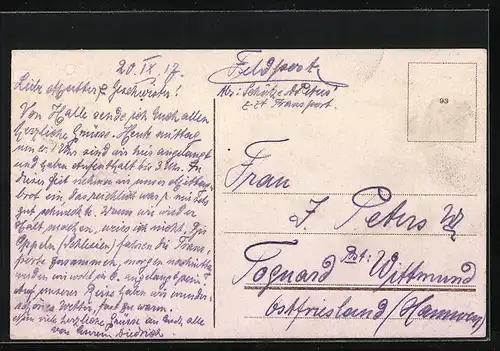 20. IX. 17.
Liebe Mutter & Geschwister!
Von Halle sende ich Euch allen
herzliche Grüsse. Heute mittag
um 1 Uhr sind wir hier angelangt
und haben Aufenthalt bis 3 Uhr. In
dieser Zeit nehmen wir unser Mittag-
brot ein, das reichlich war &
gut schmeckte. Wann wir wieder
Halt machen, weiss ich nicht. In
Oppeln (Schlesien) fahren die Trans-
porte zusammen, morgen nachmittag
werden wir wohl in O. angelangt sein.
Auf unserer Reise haben wir wunder-
schönes Wetter, fast zu warm.
Nun viele herzliche Grüsse an Euch alle
von Eurem Diedrich.
Feldpost
Abs: Schütze Peters
z. Zt. Transport.
93
Frau
J. Peters Ww
Pst: Wittmund
Ostfriesland (Hannover)